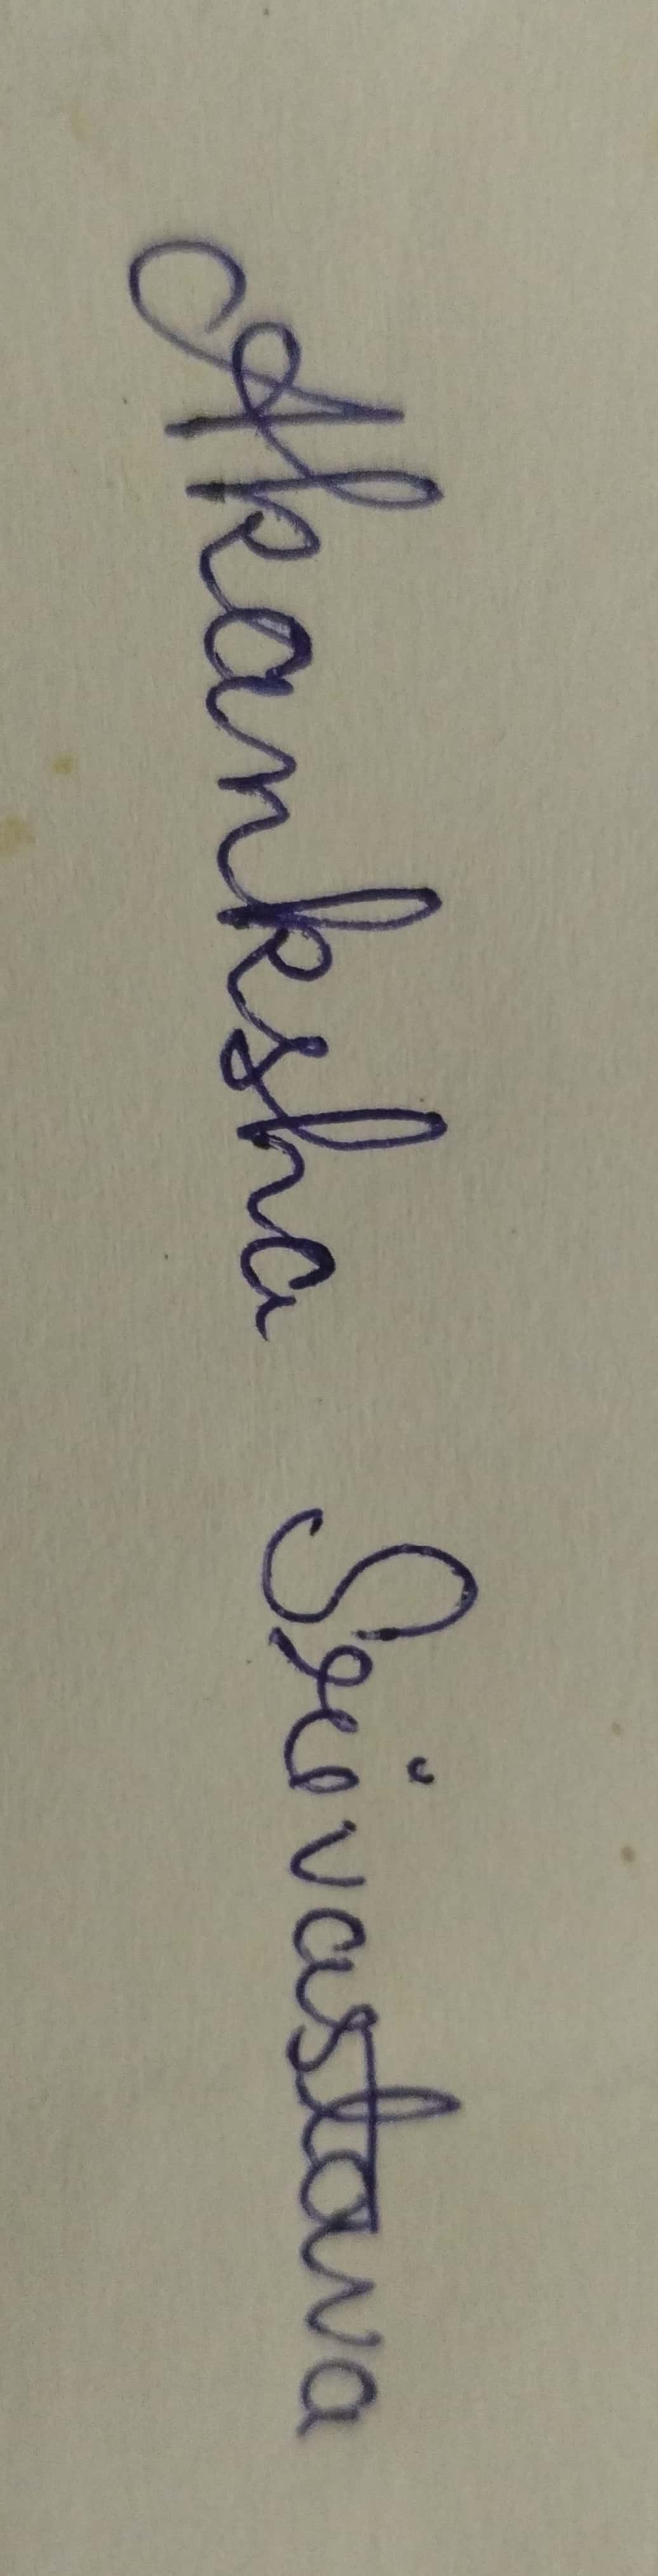 Akanksha Srivastava